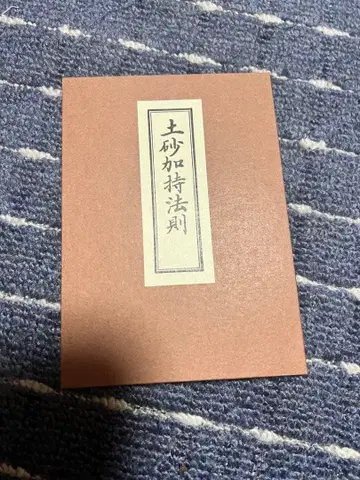 土砂加持法則